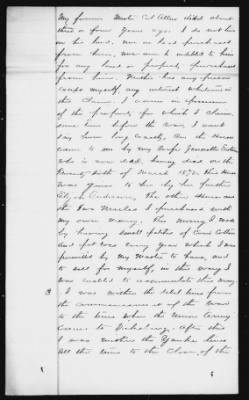 My former Master Col Collier died about
three or four years ago. I do not live
on his land, nor on land purchased
from him, nor am I indebted to him
for any land or property purchased
from him. Neither has any person
except myself, any interest whatever in
this Claim. I came in possession
of the property for which I claim,
some time before the war, I cannot
say how long exactly. One the Horses
came to me by my Wife
who is now dead, having died on the
Twenty Sixth of March 1872. This Horse
was given to her by her father
Anderson. The other Horse and
the two Mules I purchased with
my own money. This money I made
by having small patches of Corn Cotton
and every year which I was
permitted by my Master to have, and
to sell for myself, in this way I
was enabled to accumulate this money.
3 I was within the rebel lines from
the commencement of the war
to the time when the Union Army
came to Vicksburg. After this
I was within the Yankee lines
All the time to the close of the